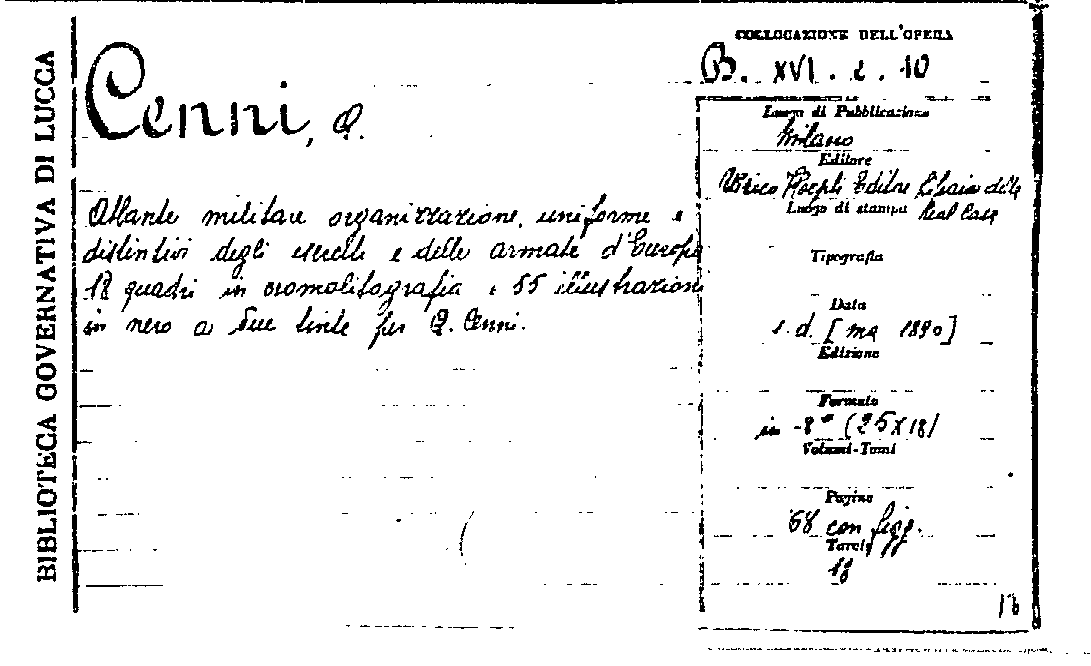 BIBLIOTECA GOVERNATIVA DI LUCCA
Cenni, Q.
Atlante militare organizzazione, uniforme e
distintivi degli eserciti e delle armate d'Europa
18 quadri in cromolitografia e 55 illustrazioni
in nero a due tinte per Q. Cenni.
COLLOCAZIONE DELL'OPERA
B. XVI. e. 10
Luogo di Pubblicazione
Milano
Editore
Ulrico Hoepli Editore Libraio della
Luogo di stampa Real Casa
Tipografia
Data
s. d. [ma 1890]
Edizione
Formato
in -8° (25X18)
Volumi-Tomi
Pagine
68 con figg.
Tavole
18